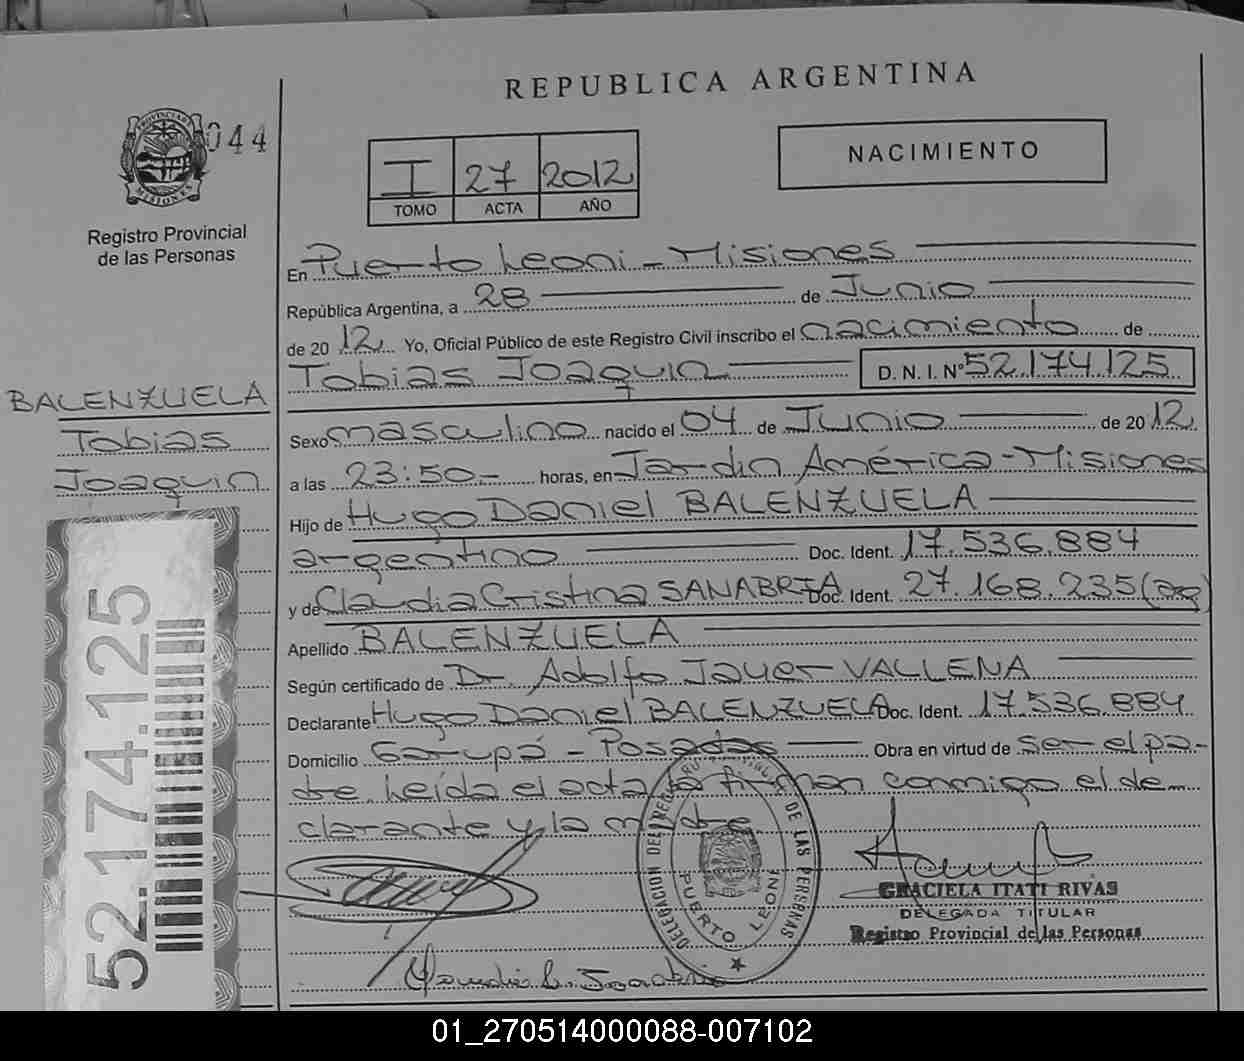 REPUBLICA ARGENTINA
PROVINCIA DE
MISIONES
044
Registro Provincial
de las Personas
I 27 2012
TOMO ACTA AÑO
NACIMIENTO
En Puerto Leoni - Misiones
República Argentina, a 28 de Junio
de 2012 Yo, Oficial Público de este Registro Civil inscribo el nacimiento de
Tobias Joaquin D. N. I. Nº 52.174.125
BALENZUELA
Tobias
Joaquin
Sexo masculino nacido el 04 de Junio de 2012
a las 23:50.- horas, en Jardin América - Misiones
Hijo de Hugo Daniel BALENZUELA
argentino Doc. Ident. 17.536.884
y de Claudia Cristina SANABRIA Doc. Ident. 27.168.235 (ag)
Apellido BALENZUELA
Según certificado de Dr. Adolfo Javier VALLENA
Declarante Hugo Daniel BALENZUELA Doc. Ident. 17.536.884
Domicilio Garupá - Posadas Obra en virtud de ser el pa-
dre. Leída el acta la firman conmigo el de-
clarante y la madre
52.174.125
DELEGACION DEL REGISTRO PROVINCIAL DE LAS PERSONAS
PUERTO LEONI
GRACIELA ITATI RIVAS
DELEGADA TITULAR
Registro Provincial de las Personas
01_270514000088-007102